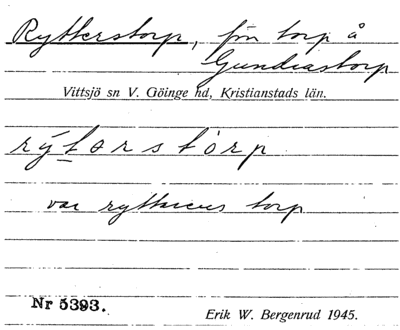 Rytterstorp, förr torp å
Gundrastorp
Vittsjö sn V. Göinge hd, Kristianstads län.
rýtərstòrp
var ryttarens torp
Nr 5393.
Erik W. Bergenrud 1945.